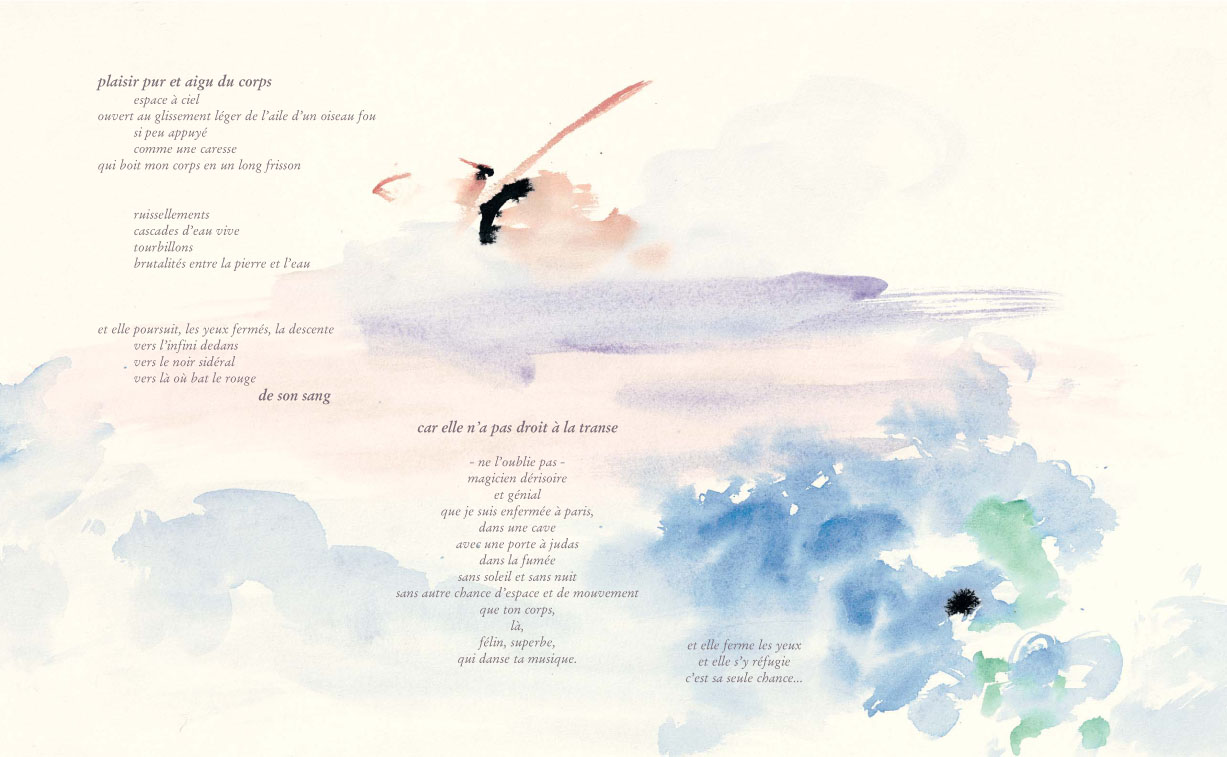 plaisir pur et aigu du corps
espace à ciel
ouvert au glissement léger de l'aile d'un oiseau fou
si peu appuyé
comme une caresse
qui boit mon corps en un long frisson
ruissellements
cascades d'eau vive
tourbillons
brutalités entre la pierre et l'eau
et elle poursuit, les yeux fermés, la descente
vers l'infini dedans
vers le noir sidéral
vers là où bat le rouge
de son sang
car elle n'a pas droit à la transe
- ne l'oublie pas -
magicien dérisoire
et génial
que je suis enfermée à paris,
dans une cave
avec une porte à judas
dans la fumée
sans soleil et sans nuit
sans autre chance d'espace et de mouvement
que ton corps,
là,
félin, superbe,
qui danse ta musique.
et elle ferme les yeux
et elle s'y réfugie
c'est sa seule chance...